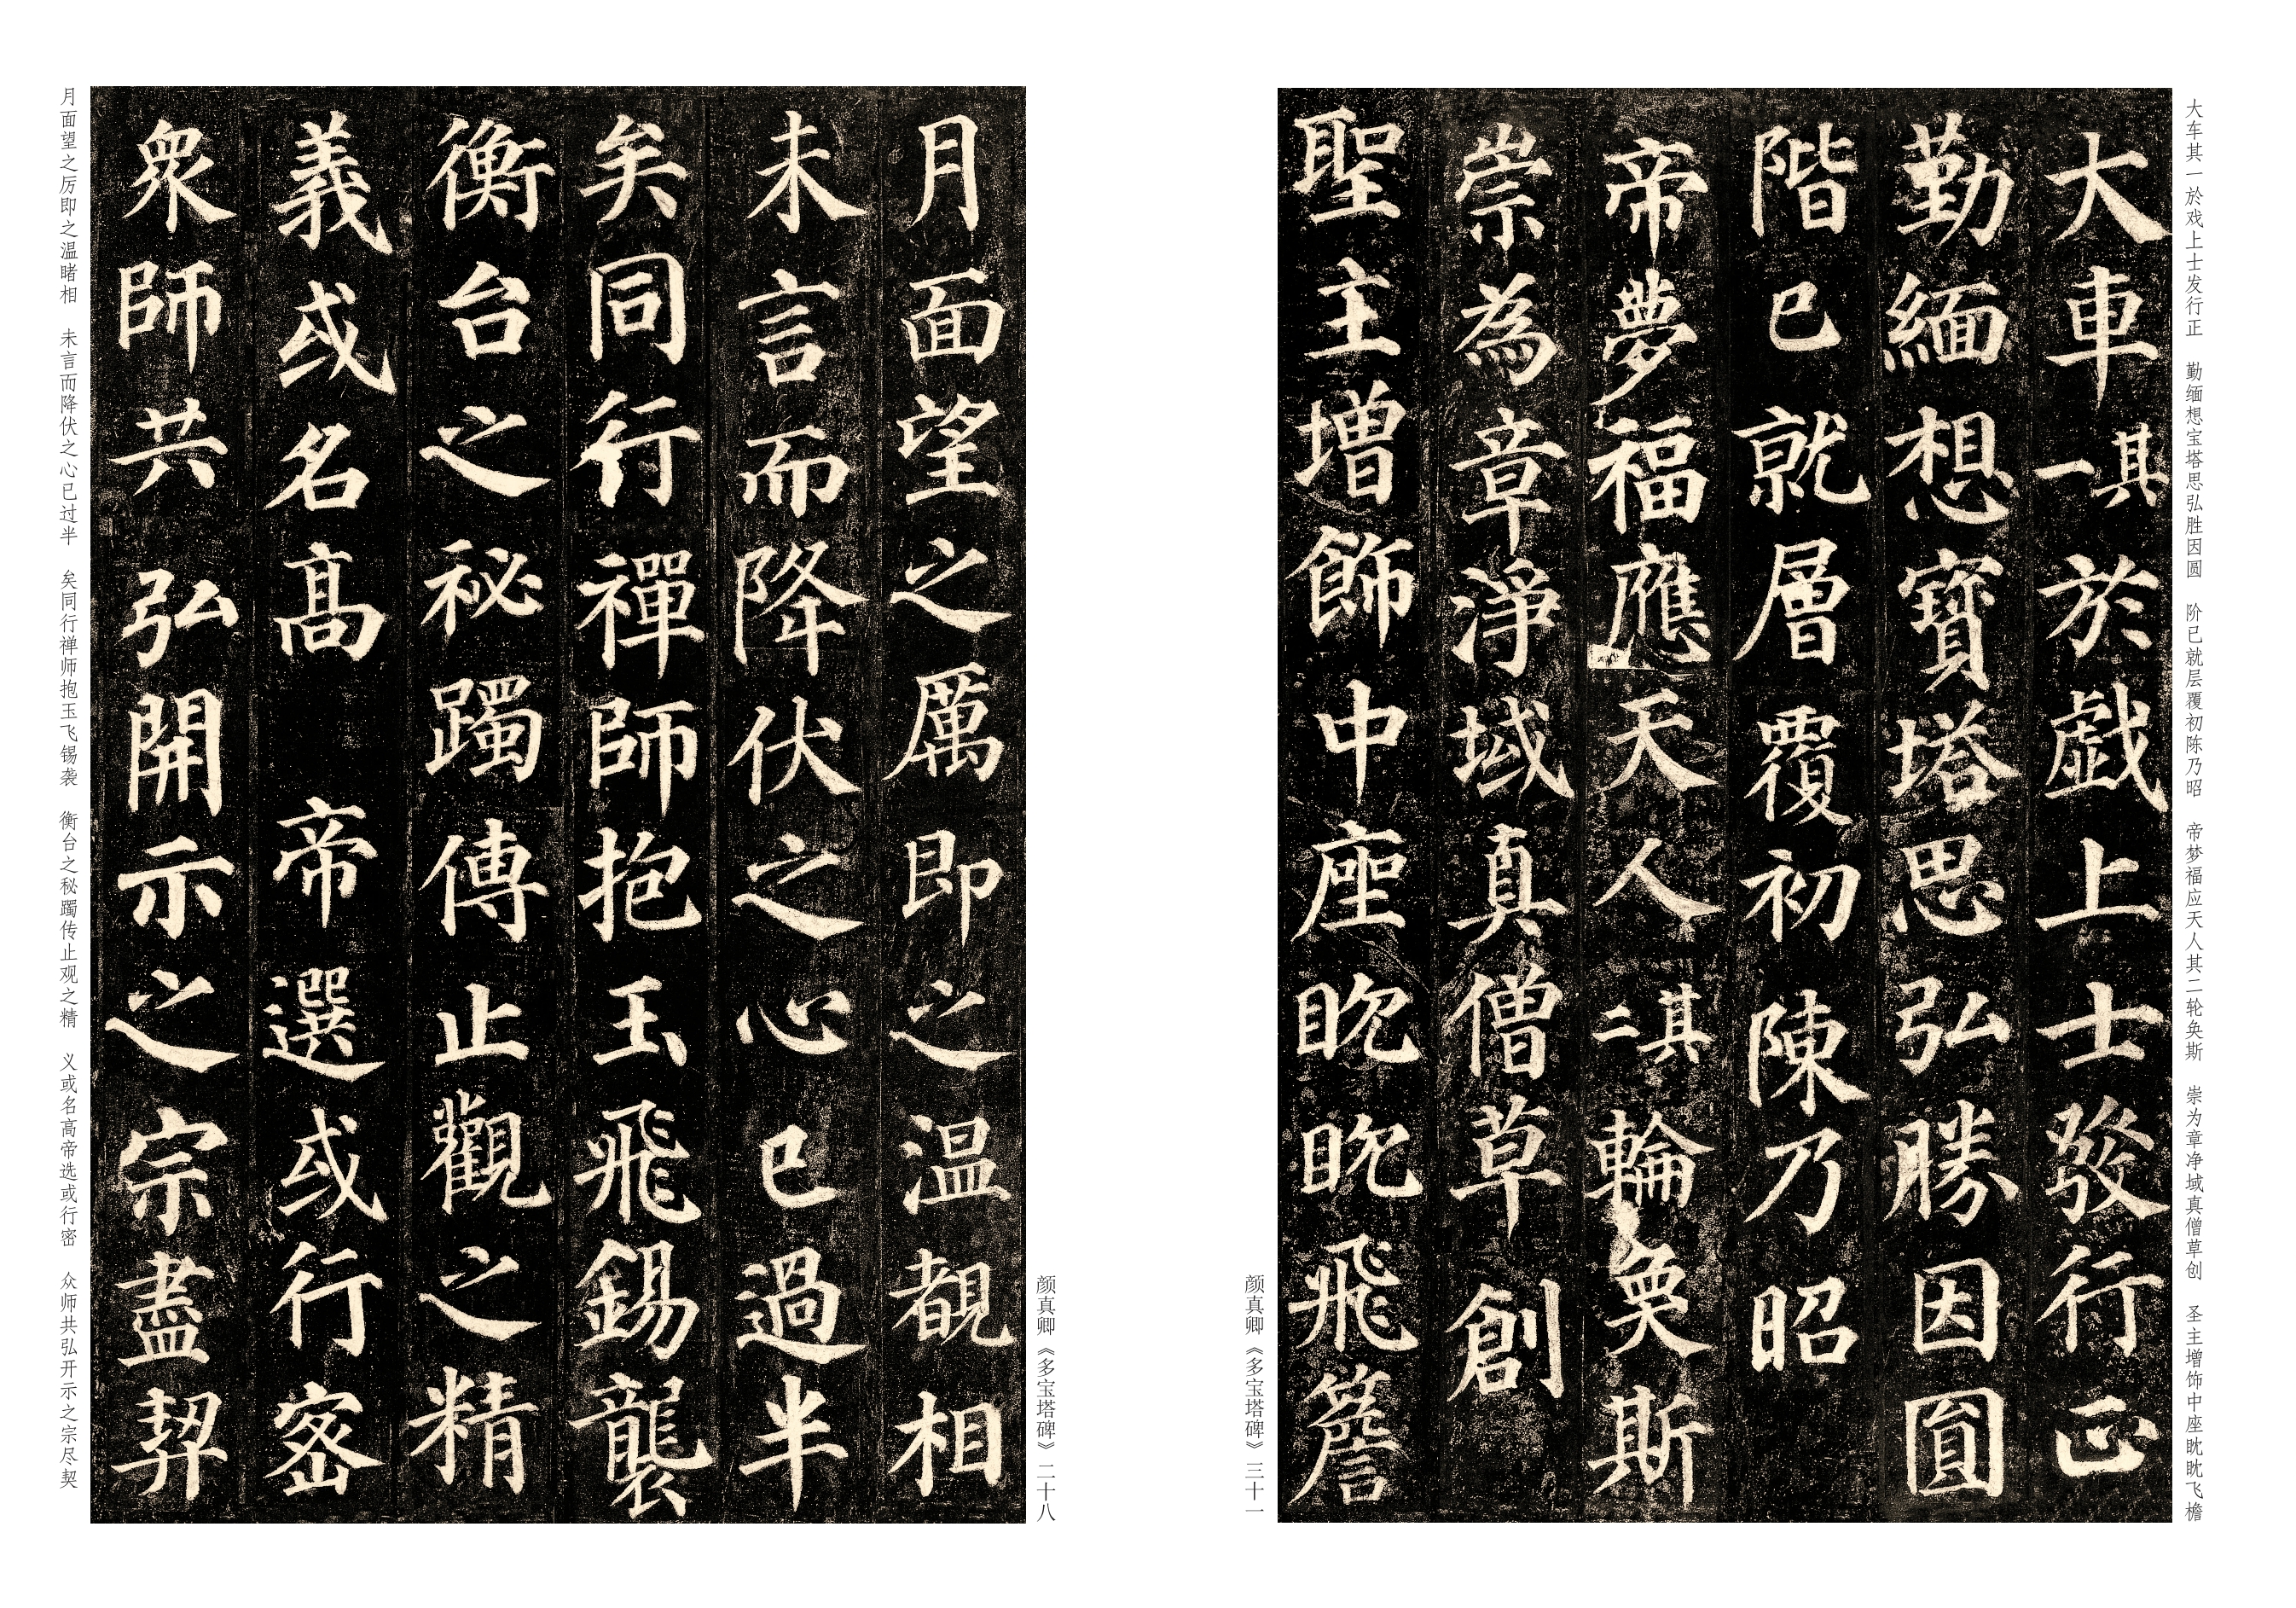 大车其一於戏上士发行正　勤缅想宝塔思弘胜因圆　阶已就层覆初陈乃昭　帝梦福应天人其二轮奂斯　崇为章净域真僧草创　圣主增饰中座眈眈飞檐
大車其一於戲上士發行正
勤緬想寶塔思弘勝因圓
階已就層覆初陳乃昭
帝夢福應天人其二輪奐斯
崇為章淨域真僧草創
聖主增飾中座眈眈飛簷
颜真卿《多宝塔碑》三十一
颜真卿《多宝塔碑》二十八
月面望之厲即之温覩相
未言而降伏之心已過半
矣同行禪師抱玉飛錫襲
衡台之祕躅傳止觀之精
義或名高帝選或行密
衆師共弘開示之宗盡契
月面望之厉即之温睹相　未言而降伏之心已过半　矣同行禅师抱玉飞锡袭　衡台之秘躅传止观之精　义或名高帝选或行密　众师共弘开示之宗尽契